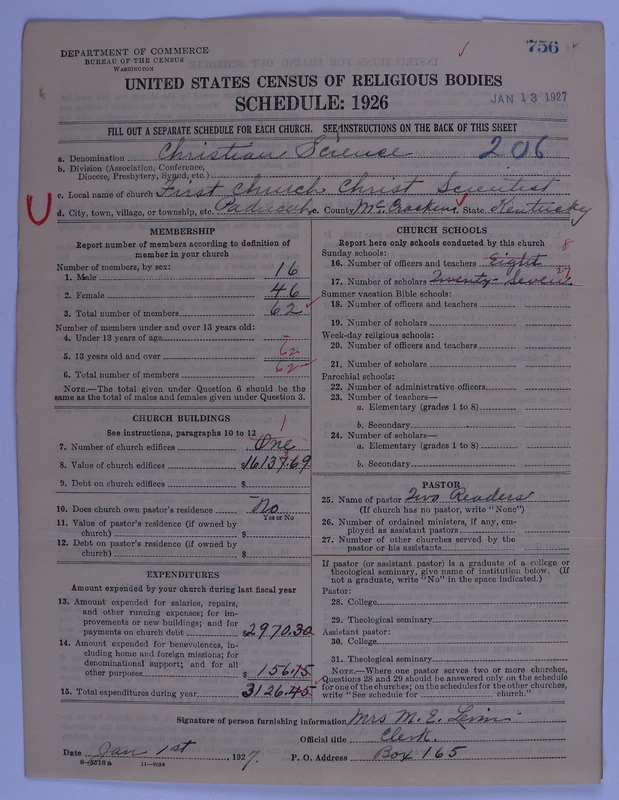 756
DEPARTMENT OF COMMERCE
BUREAU OF THE CENSUS
WASHINGTON
UNITED STATES CENSUS OF RELIGIOUS BODIES
SCHEDULE: 1926
JAN 13 1927
FILL OUT A SEPARATE SCHEDULE FOR EACH CHURCH. SEE INSTRUCTIONS ON THE BACK OF THIS SHEET
a. Denomination Christian Science 206
b. Division (Association, Conference,
Diocese, Presbytery, Synod, etc.)
c. Local name of church First Church Christ Scientist
d. City, town, village, or township, etc. Paducah e. County McCracken State Kentucky
MEMBERSHIP
Report number of members according to definition of
member in your church
Number of members, by sex:
1. Male 16
2. Female 46
3. Total number of members 62
Number of members under and over 13 years old:
4. Under 13 years of age –
5. 13 years old and over 62
6. Total number of members 62
NOTE.—The total given under Question 6 should be the
same as the total of males and females given under Question 3.
CHURCH BUILDINGS
See instructions, paragraphs 10 to 12
7. Number of church edifices One 1
8. Value of church edifices $16137.69
9. Debt on church edifices $
10. Does church own pastor's residence No
Yes or No
11. Value of pastor's residence (if owned by
church) $
12. Debt on pastor's residence (if owned by
church) $
EXPENDITURES
Amount expended by your church during last fiscal year
13. Amount expended for salaries, repairs,
and other running expenses; for im-
provements or new buildings; and for
payments on church debt $2970.30
14. Amount expended for benevolences, in-
cluding home and foreign missions; for
denominational support; and for all
other purposes $156.15
15. Total expenditures during year 3126.45
CHURCH SCHOOLS
Report here only schools conducted by this church
Sunday schools:
16. Number of officers and teachers Eight 8
17. Number of scholars Twenty Seven 27
Summer vacation Bible schools:
18. Number of officers and teachers
19. Number of scholars
Week-day religious schools:
20. Number of officers and teachers
21. Number of scholars
Parochial schools:
22. Number of administrative officers
23. Number of teachers—
a. Elementary (grades 1 to 8)
b. Secondary
24. Number of scholars—
a. Elementary (grades 1 to 8)
b. Secondary
PASTOR
25. Name of pastor Two Readers
(If church has no pastor, write "None")
26. Number of ordained ministers, if any, em-
ployed as assistant pastors
27. Number of other churches served by the
pastor or his assistants
If pastor (or assistant pastor) is a graduate of a college or
theological seminary, give name of institution below. (If
not a graduate, write "No" in the space indicated.)
Pastor:
28. College
29. Theological seminary
Assistant pastor:
30. College
31. Theological seminary
NOTE.—Where one pastor serves two or more churches,
Questions 28 and 29 should be answered only on the schedule
for one of the churches; on the schedules for the other churches,
write "See schedule for church."
Signature of person furnishing information Mrs. M. E.
Official title Clerk.
Date Jan 1st, 1927. P. O. Address Box 165
8-5518a 11-9034